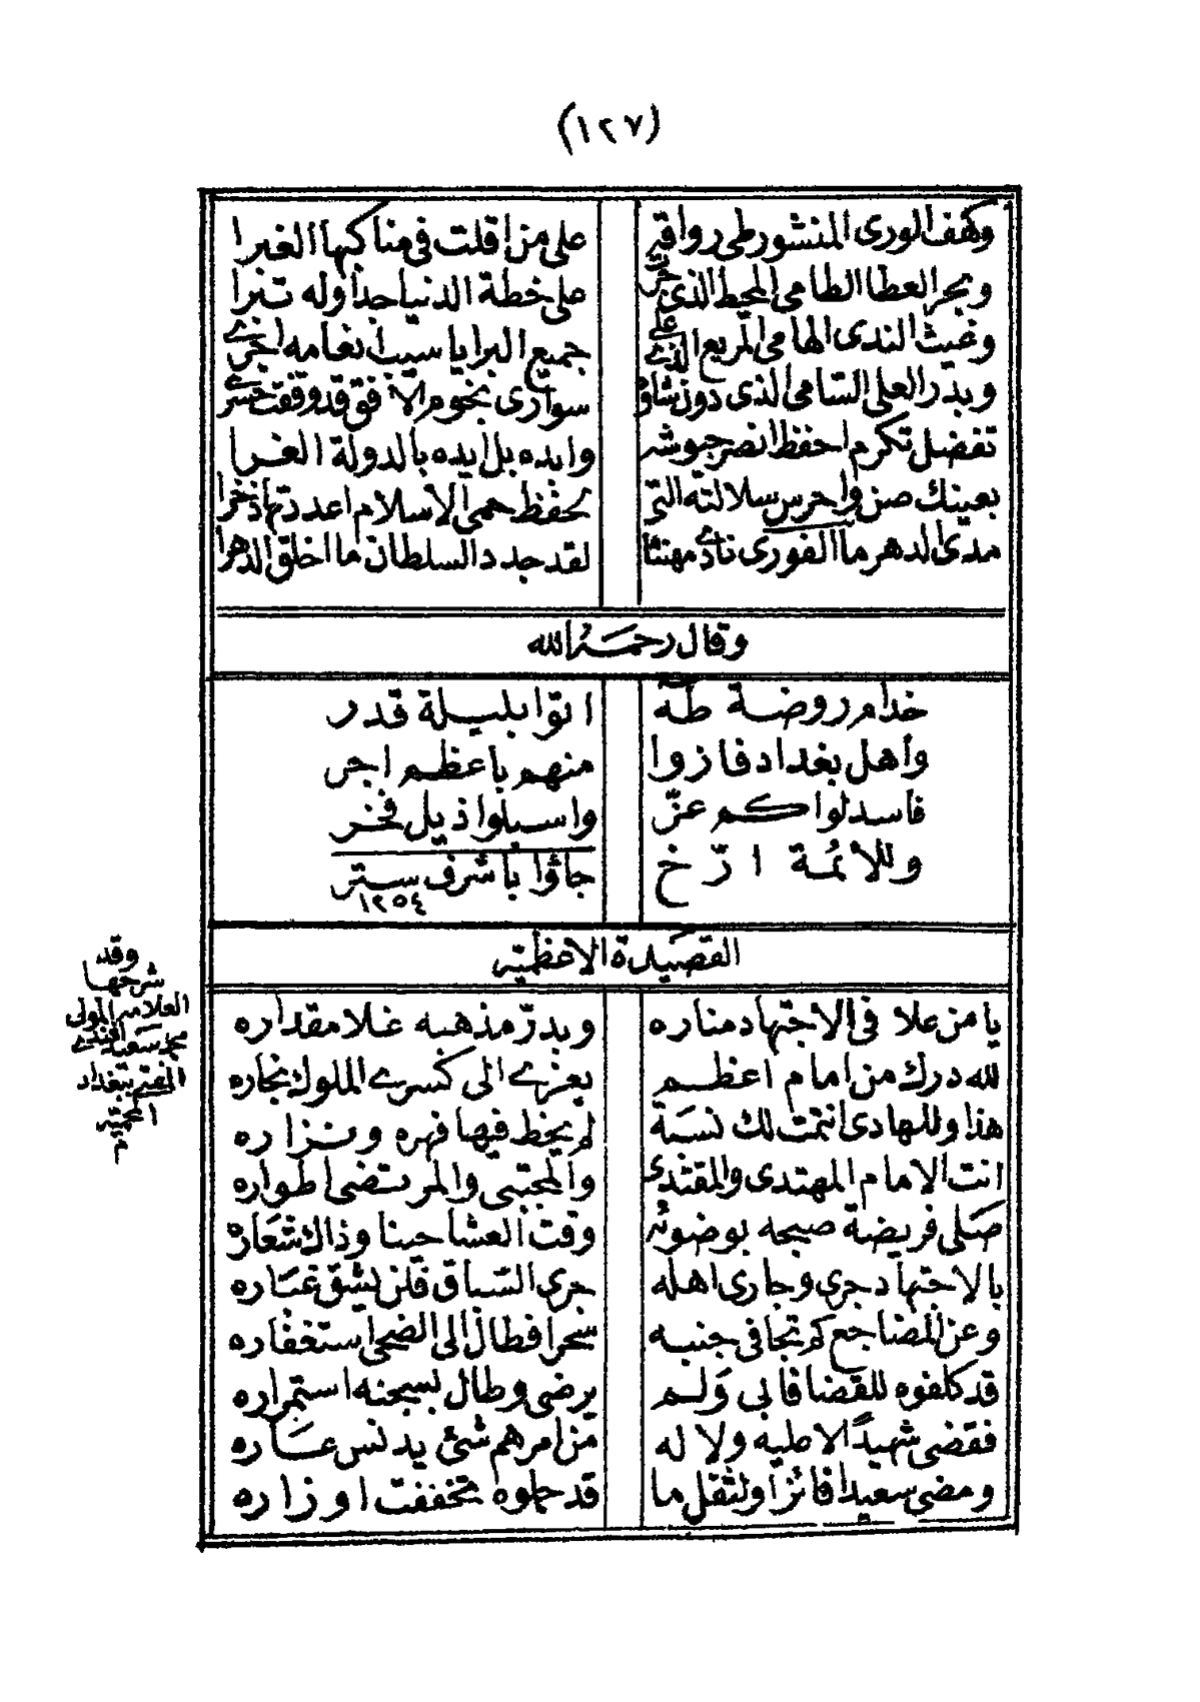 (١٢٧)
وكهف الورى المنشور طي رواقه على من اقلت في مناكبها الغبرا
وبحر العطا الطامي المحيط الذي جرت على خطة الدنيا جداوله تبرا
وغيث الندى الهامي المريع الذي على جميع البرايا سيب انعامه اجرى
وبدر العلى السامي الذي دون شاوه سوارى نجوم الافق قد وقفت حسرى
تفضل تكرم احفظ انصر جيوشه وايده بل ايده بالدولة الغرا
بعينك صن واحرس سلالته التي لحفظ حمى الاسلام اعددتها ذخرا
مدى الدهر ما الفوري نادى مهنئا لقد جدد السلطان ما اخلق الدهرا
وقال رحمه الله
خدام روضة طه اتوا بليلة قدر
واهل بغداد فازوا منهم باعظم اجر
فاسدلوا كم عز واسبلوا ذيل فخر
وللأئمة ارّخ جاؤا باشرف ستر
١٢٥٤
القصيدة الاعظمية
يا من علا في الاجتهاد مناره وبدرّ مذهبه غلا مقداره
لله درك من امام اعظم يعزى الى كسرى الملوك نجاره
هذا وللهادى انتمت لك نسبة لم يحظ فيها فهره ونزاره
انت الامام المهتدى والمقتدى والمجتبى والمرتضى اطواره
صلى فريضة صبحه بوضوئه وقت العشا حينا وذاك شعاره
بالاجتهاد جرى وجارى اهله جرى السباق فلن يشق غباره
وعن المضاجع كم تجافى جنبه سحرا فطال الى الضحى استغفاره
قد كلفوه للقضا فابى ولم يرضى وطال بسجنه استمراره
فقضى شهيداً لا عليه ولا له من امرهم شئ يدنس عاره
ومضى سعيدا فائزا ولثقل ما قد حملوه تخففت اوزاره
وقد
شرحها
العلامه المولى
محمد سعيد افندى
المفتي ببغداد
المحميه
م